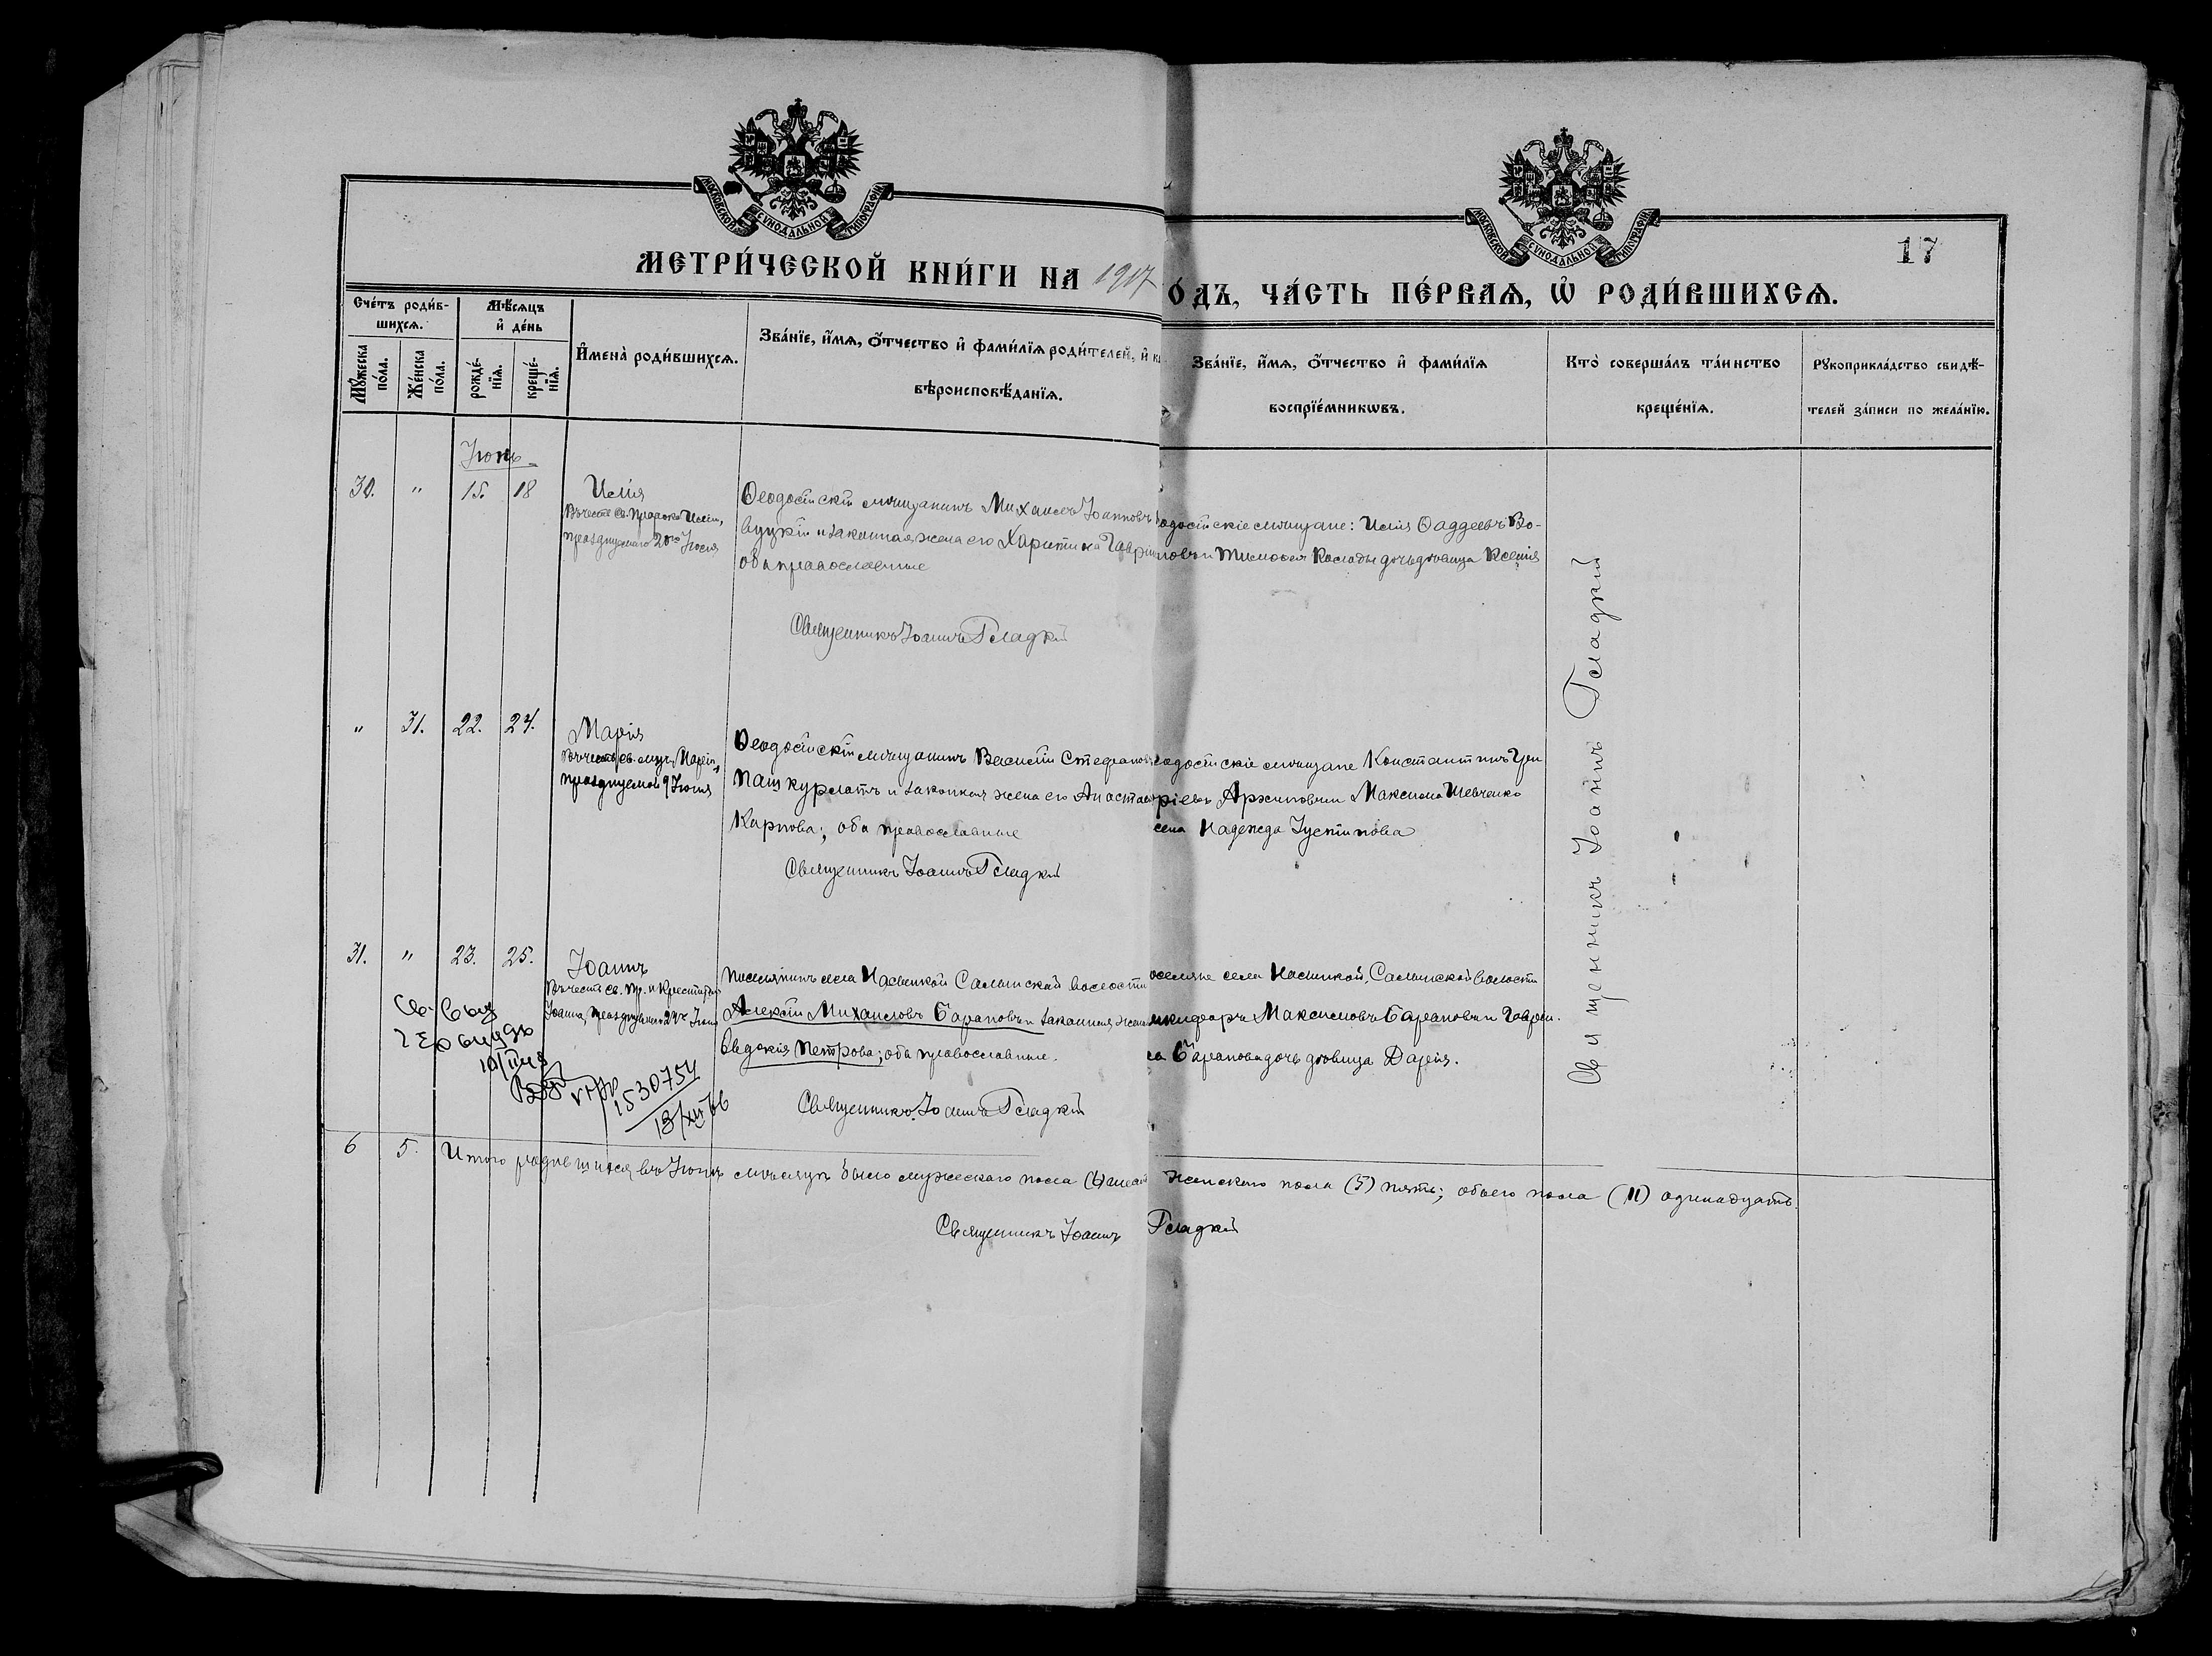 МОСКОВСКОЙ СѴНОДАЛЬНОЙ ТИПОГРАФІИ
МОСКОВСКОЙ СѴНОДАЛЬНОЙ ТИПОГРАФІИ
17
МЕТРИ́ЧЕСКОЙ КНИ́ГИ НА 1917
О́ДЪ, ЧА́СТЬ ПЕ́РВАѦ, Ѡ҆ РОДИ́ВШИХСѦ.
Сче́тъ роди́в-
шихсѧ.
Мꙋ́жеска по́ла.
Же́нска по́ла.
Мѣ́сѧцъ
и҆ де́нь
рожде́-
нїѧ.
креще́-
нїѧ.
И҆мена̀ роди́вшихсѧ.
Зва́нїе, и҆́мѧ, ѻ҆́тчество и҆ фами́лїѧ роди́телей, и҆ к
вѣроисповѣ́данїѧ.
Зва́нїе, и҆́мѧ, ѻ҆́тчество и҆ фами́лїѧ
воспрїе́мникѡвъ.
Кто̀ соверша́лъ та́инство
креще́нїѧ.
Рꙋкоприкла́дство свидѣ́-
телей за́писи по жела́нїю.
Іюнь
30. " 15. 18
Илія
Въ честь св. Пророка Иліи,
празднуемаго 20го Іюля
Ѳеодосійскій мѣщанинъ Михаилъ Іоанновъ
вуцкій и законная жена его Харитина Гаврі
оба православные
Священникъ Іоаннъ Гладкій
одосійскіе мѣщане: Илія Ѳаддеевъ Во-
новъ и Тимоѳея Коляды дочь дѣвица Ксенія
Священникъ Іоаннъ Гладкій
" 31. 22. 24.
Марія
Въ честь св. муч. Маріи,
празднуемой 9 Іюня
Ѳеодосійскій мѣщанинъ Василій Стефанов
Пашкурлатъ и законная жена его Анастас
Карпова; оба православные
Священникъ Іоаннъ Гладкій
еодосійскіе мѣщане Константинъ Гри
ріевъ Архиповъ и Максима Шевченко
жена Надежда Іустинова
31. " 23. 25.
Іоаннъ
Въ честь св. Пр. и Крестителя
Іоанна, празднуемаго 24го Іюня
Поселянинъ села Насыпкой Салынской волости
Алексѣй Михаиловъ Барановъ и законная жена
Евдокія Петрова; оба православные.
Священникъ Іоаннъ Гладкій
оселяне села Насыпкой, Салынской волости
Никифоръ Максимовъ Барановъ и Гаврі-
ла Баранова дочь дѣвица Дарія.
1530754
13/XII 66
6 5. Итого родившихся въ Іюнѣ мѣсяцѣ было мужескаго пола (6) шесть женскаго пола (5) пять; обоего пола (11) одинадцать.
Священникъ Іоаннъ Гладкій